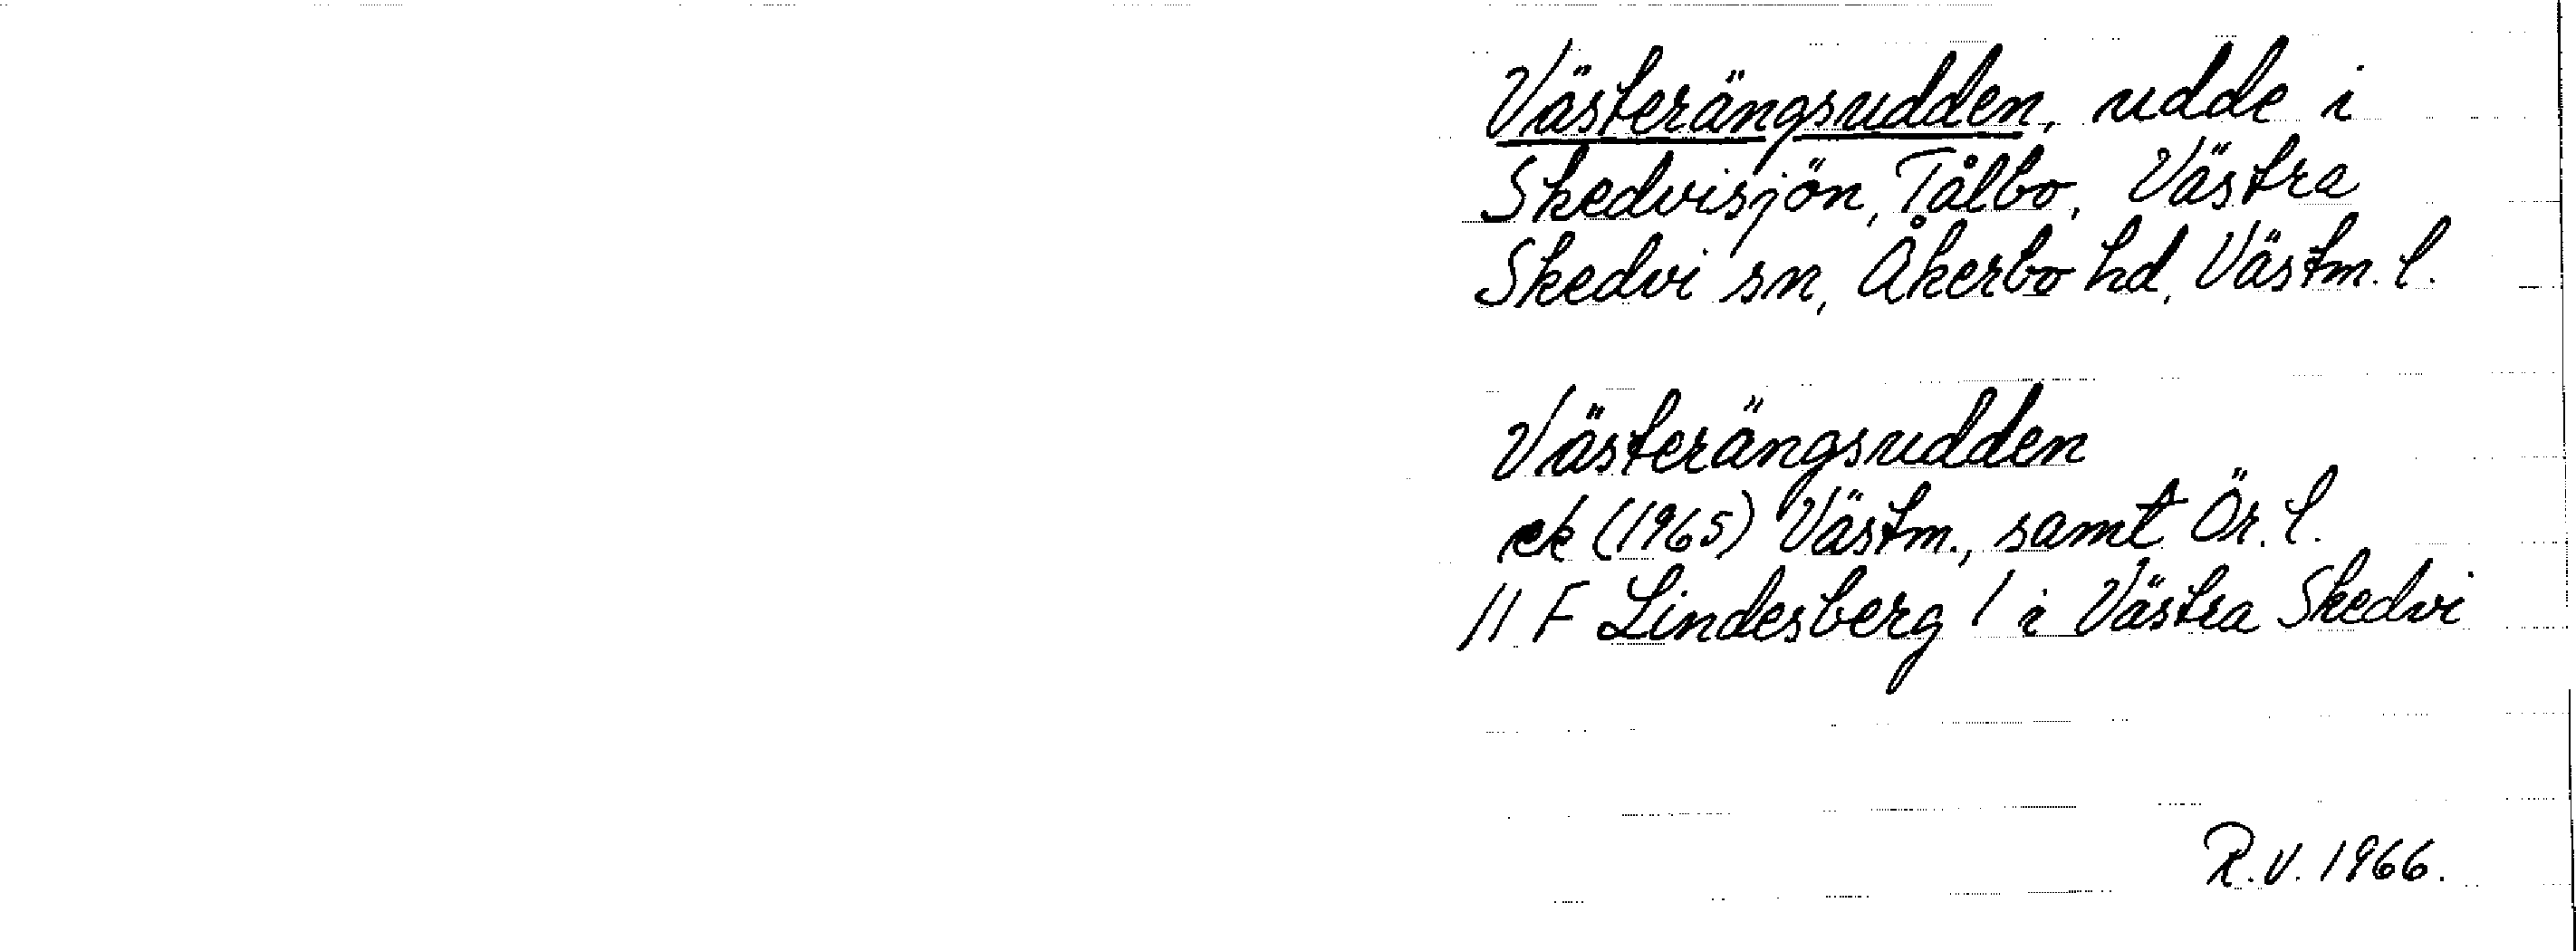 Västerängsudden, udde i
Skedvisjön, Tålbo, Västra
Skedvi sn, Åkerbo hd, Västm. l.
Västerängsudden
ek (1965) Västm., samt Ör. l.
11 F Lindesberg / i Västra Skedvi
R.V. 1966.